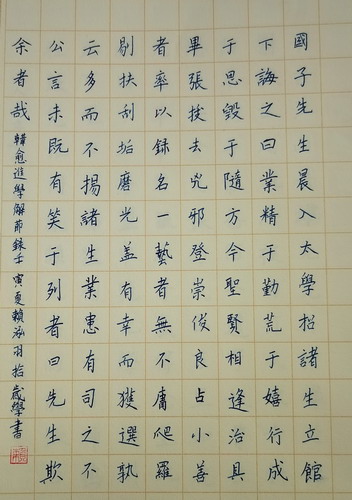 國子先生晨入太學招諸生立館
下誨之曰業精于勤荒于嬉行成
于思毀于隨方今聖賢相逢治具
畢張拔去兇邪登崇俊良占小善
者率以錄名一藝者無不庸爬羅
剔扶刮垢磨光盖有幸而獲選孰
云多而不揚諸生業患有司之不
公言未既有笑于列者曰先生欺
余者哉 韓愈進學解節錄壬寅夏賴羽拾歲學書